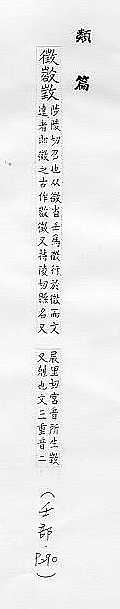 類篇
徵
陟陵切召也从微省壬爲徵行於微而文
達者即徵之古作徵又持陵切縣名又
展里切宮音所生
又姓也文三重音二
(壬部·P290)